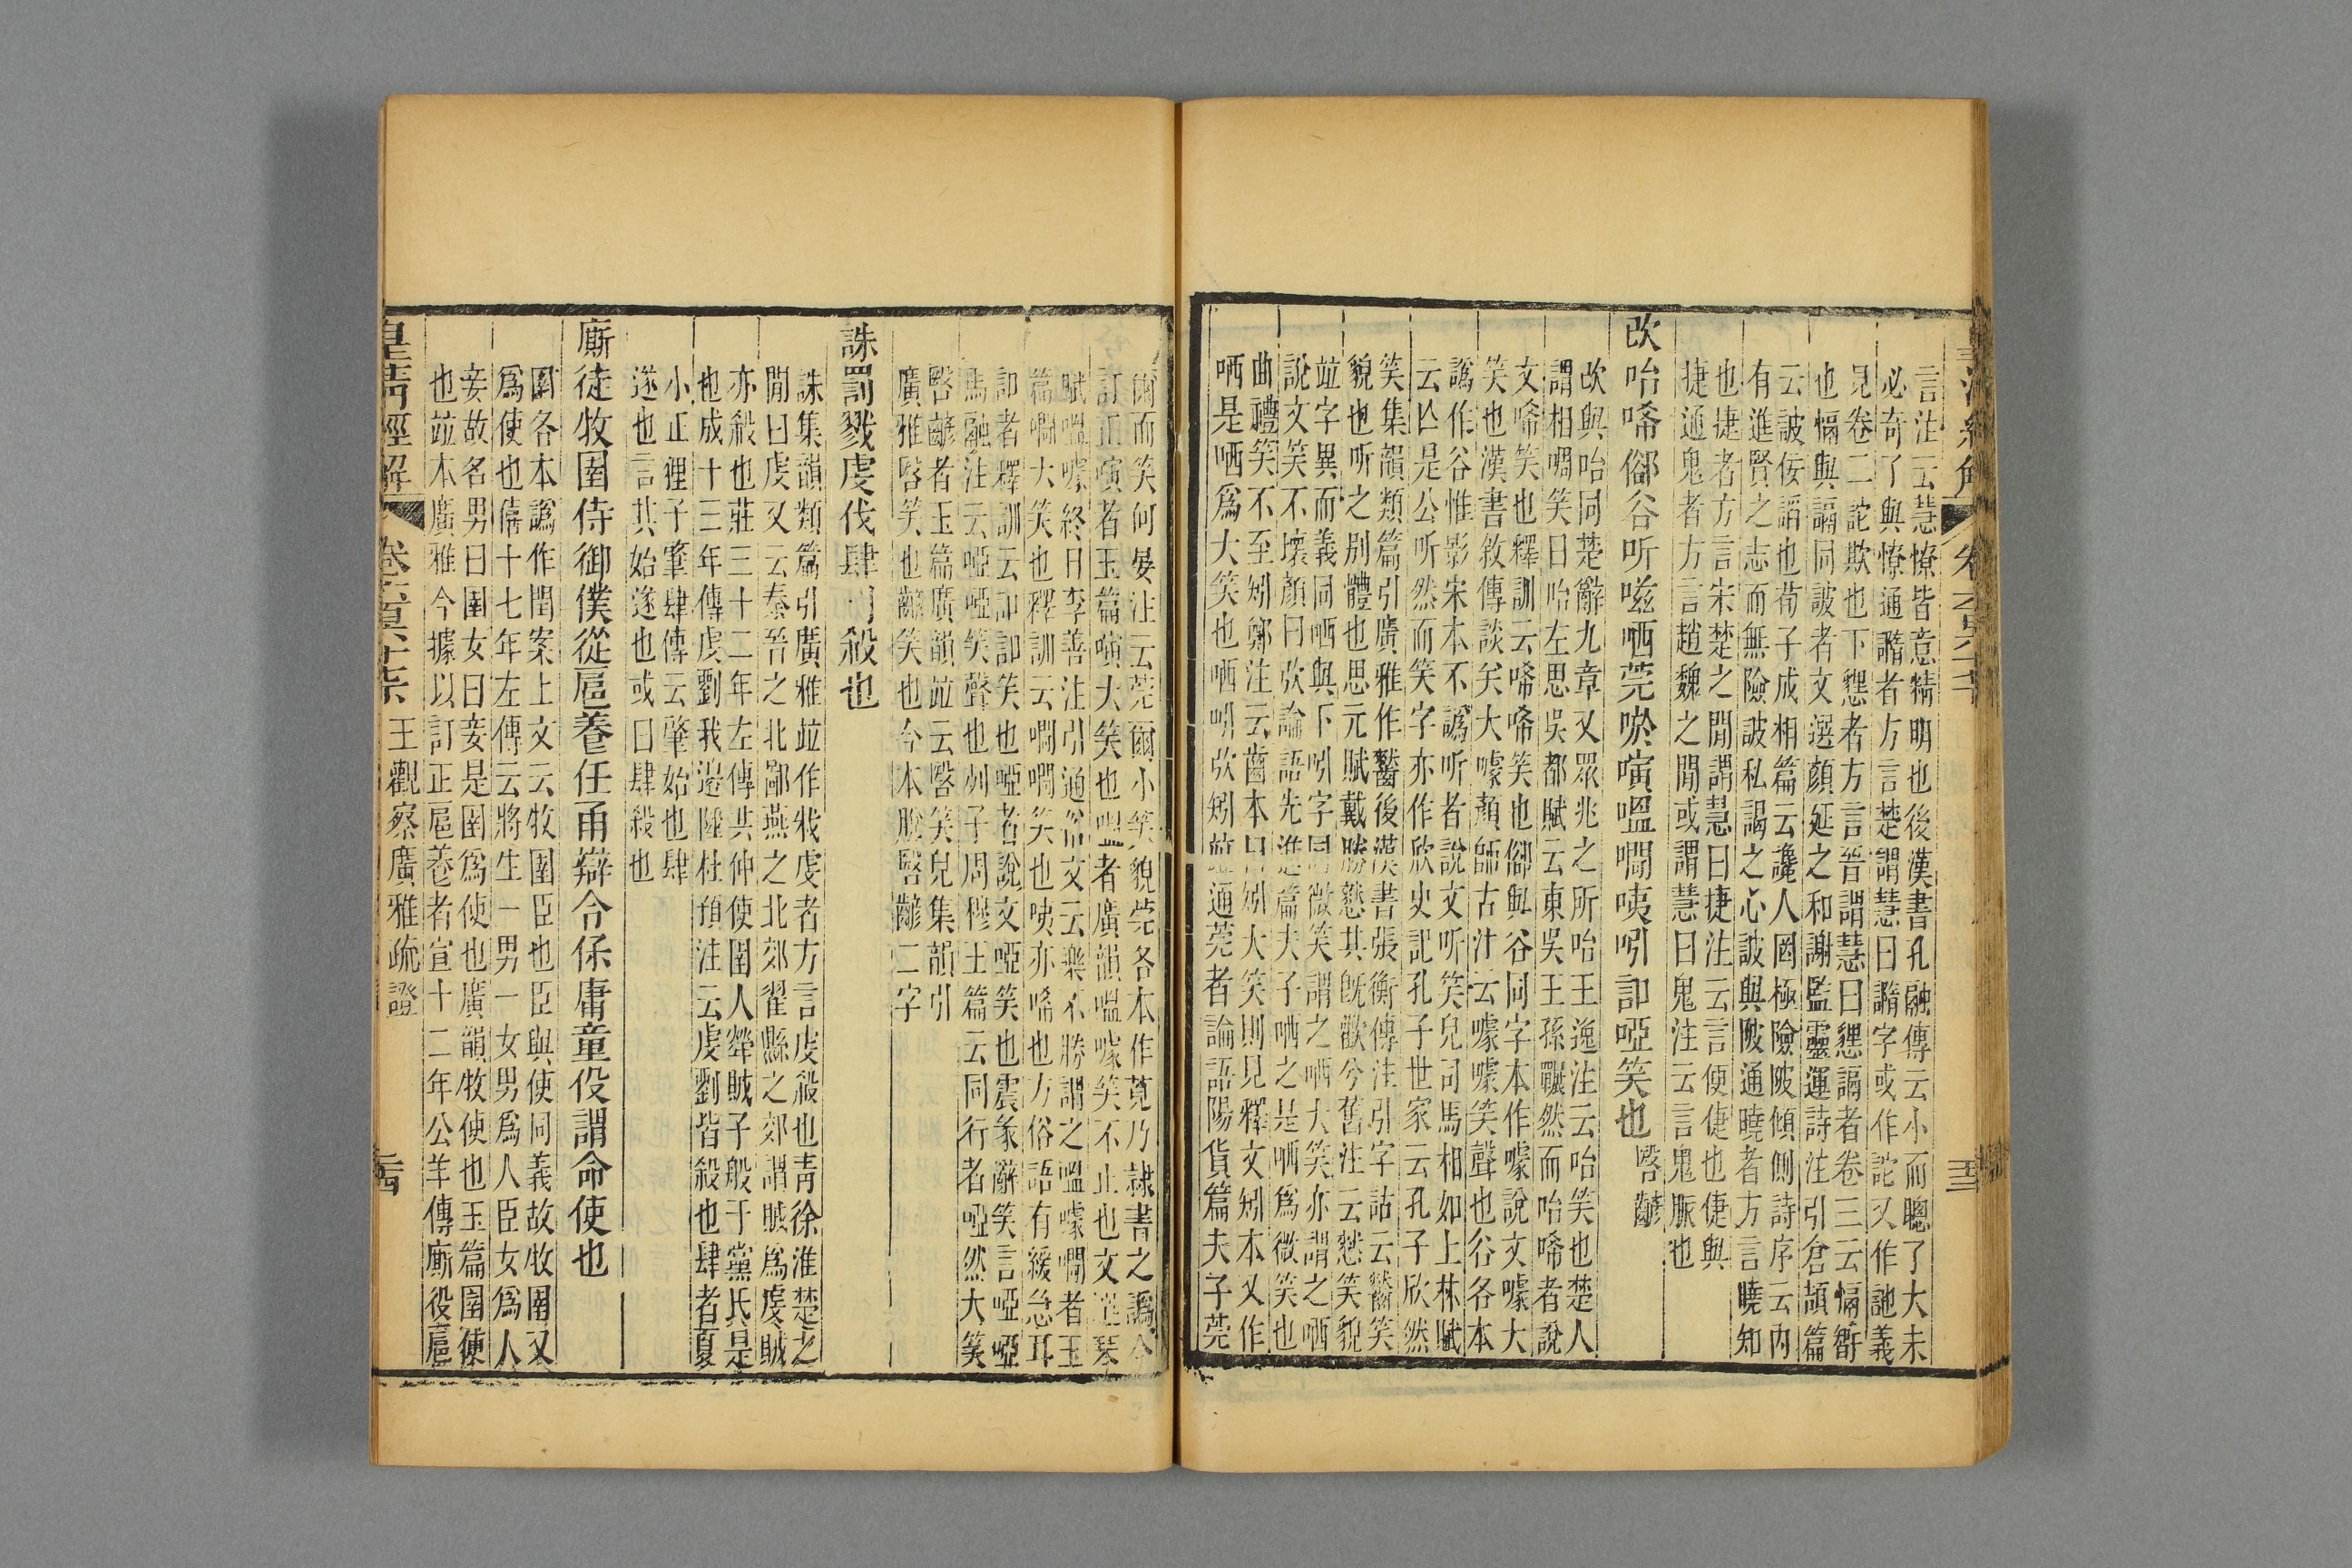 言注云慧憭皆意精明也後漢書孔融傳云小而聰了大未
必奇了與憭通䜏者方言楚謂慧曰䜏字或作詑又作訑義
見卷二詑欺也下䜩者方言晉謂慧曰䜩謾者卷三云㥬㦣
也㥬與謾同詖者文選顏延之和謝監靈運詩注引倉頡篇
云詖佞諂也荀子成相篇云讒人罔極險陂傾側詩序云內
有進賢之志而無險詖私謁之心詖與陂通曉者方言曉知
也捷者方言宋楚之閒謂慧曰捷注云言便倢也倢與
捷通鬼者方言趙魏之閒或謂慧曰鬼注云言鬼脈也
㰤咍唏㗾谷听嗞哂莞唹㗔嗢㗿咦吲㖃啞笑也㗨齸
㰤與咍同楚辭九章又眾兆之所咍王逸注云咍笑也楚人
謂相啁笑曰咍左思吳都賦云東吳王孫囅然而咍唏者說
文唏笑也釋訓云唏唏笑也㗾與谷同字本作噱說文噱大
笑也漢書敘傳談笑大噱顏師古注云噱噱笑聲也谷各本
譌作谷惟影宋本不譌听者說文听笑皃司馬相如上林賦
云亡是公听然而笑字亦作欣史記孔子世家云孔子欣然
笑集韻類篇引廣雅作齾後漢書張衡傳注引字詁云齾笑
貌也听之別體也思元賦戴勝憖其旣歡兮舊注云憖笑貌
竝字異而義同哂與下吲字同微笑謂之哂大笑亦謂之哂
說文笑不壞顏曰弞論語先進篇夫子哂之是哂爲微笑也
曲禮笑不至矧鄭注云齒本曰矧大笑則見釋文矧本又作
哂是哂爲大笑也哂吲弞矧竝通莞者論語陽貨篇夫子莞
爾而笑何晏注云莞爾小笑貌莞各本作莧乃隷書之譌今
訂正㗔者玉篇㗔大笑也嗢者廣韻嗢噱笑不止也文選琴
賦嗢噱終日李善注引通俗文云樂不勝謂之嗢噱㗿者玉
篇㗿大笑也釋訓云㗿㗿笑也咦亦唏也方俗語有緩急耳
㖃者釋訓云㖃㖃笑也啞者說文啞笑也震彖辭笑言啞啞
馬融注云啞啞笑聲也列子周穆王篇云同行者啞然大笑
㗨齸者玉篇廣韻竝云㗨笑皃集韻引
廣雅㗨笑也齸笑也今本脫㗨齸二字
誅罰戮虔伐肆刖殺也
誅集韻類篇引廣雅竝作㦵虔者方言虔殺也青徐淮楚之
閒曰虔又云秦晉之北鄙燕之北郊翟縣之郊謂賊爲虔賊
亦殺也莊三十二年左傳共仲使圉人犖賊子般于黨氏是
也成十三年傳虔劉我邊陲杜預注云虔劉皆殺也肆者夏
小正貍子肇肆傳云肇始也肆
遂也言其始遂也或曰肆殺也
廝徒牧圉侍御僕從扈養任甬辯令保庸童役謂命使也
圉各本譌作閏案上文云牧圉臣也臣與使同義故牧圉又
爲使也僖十七年左傳云將生一男一女男爲人臣女爲人
妾故名男曰圉女曰妾是圉爲使也廣韻牧使也玉篇圉使
也竝本廣雅今據以訂正扈養者宣十二年公羊傳廝役扈
皇淸經解
王觀察廣雅疏證